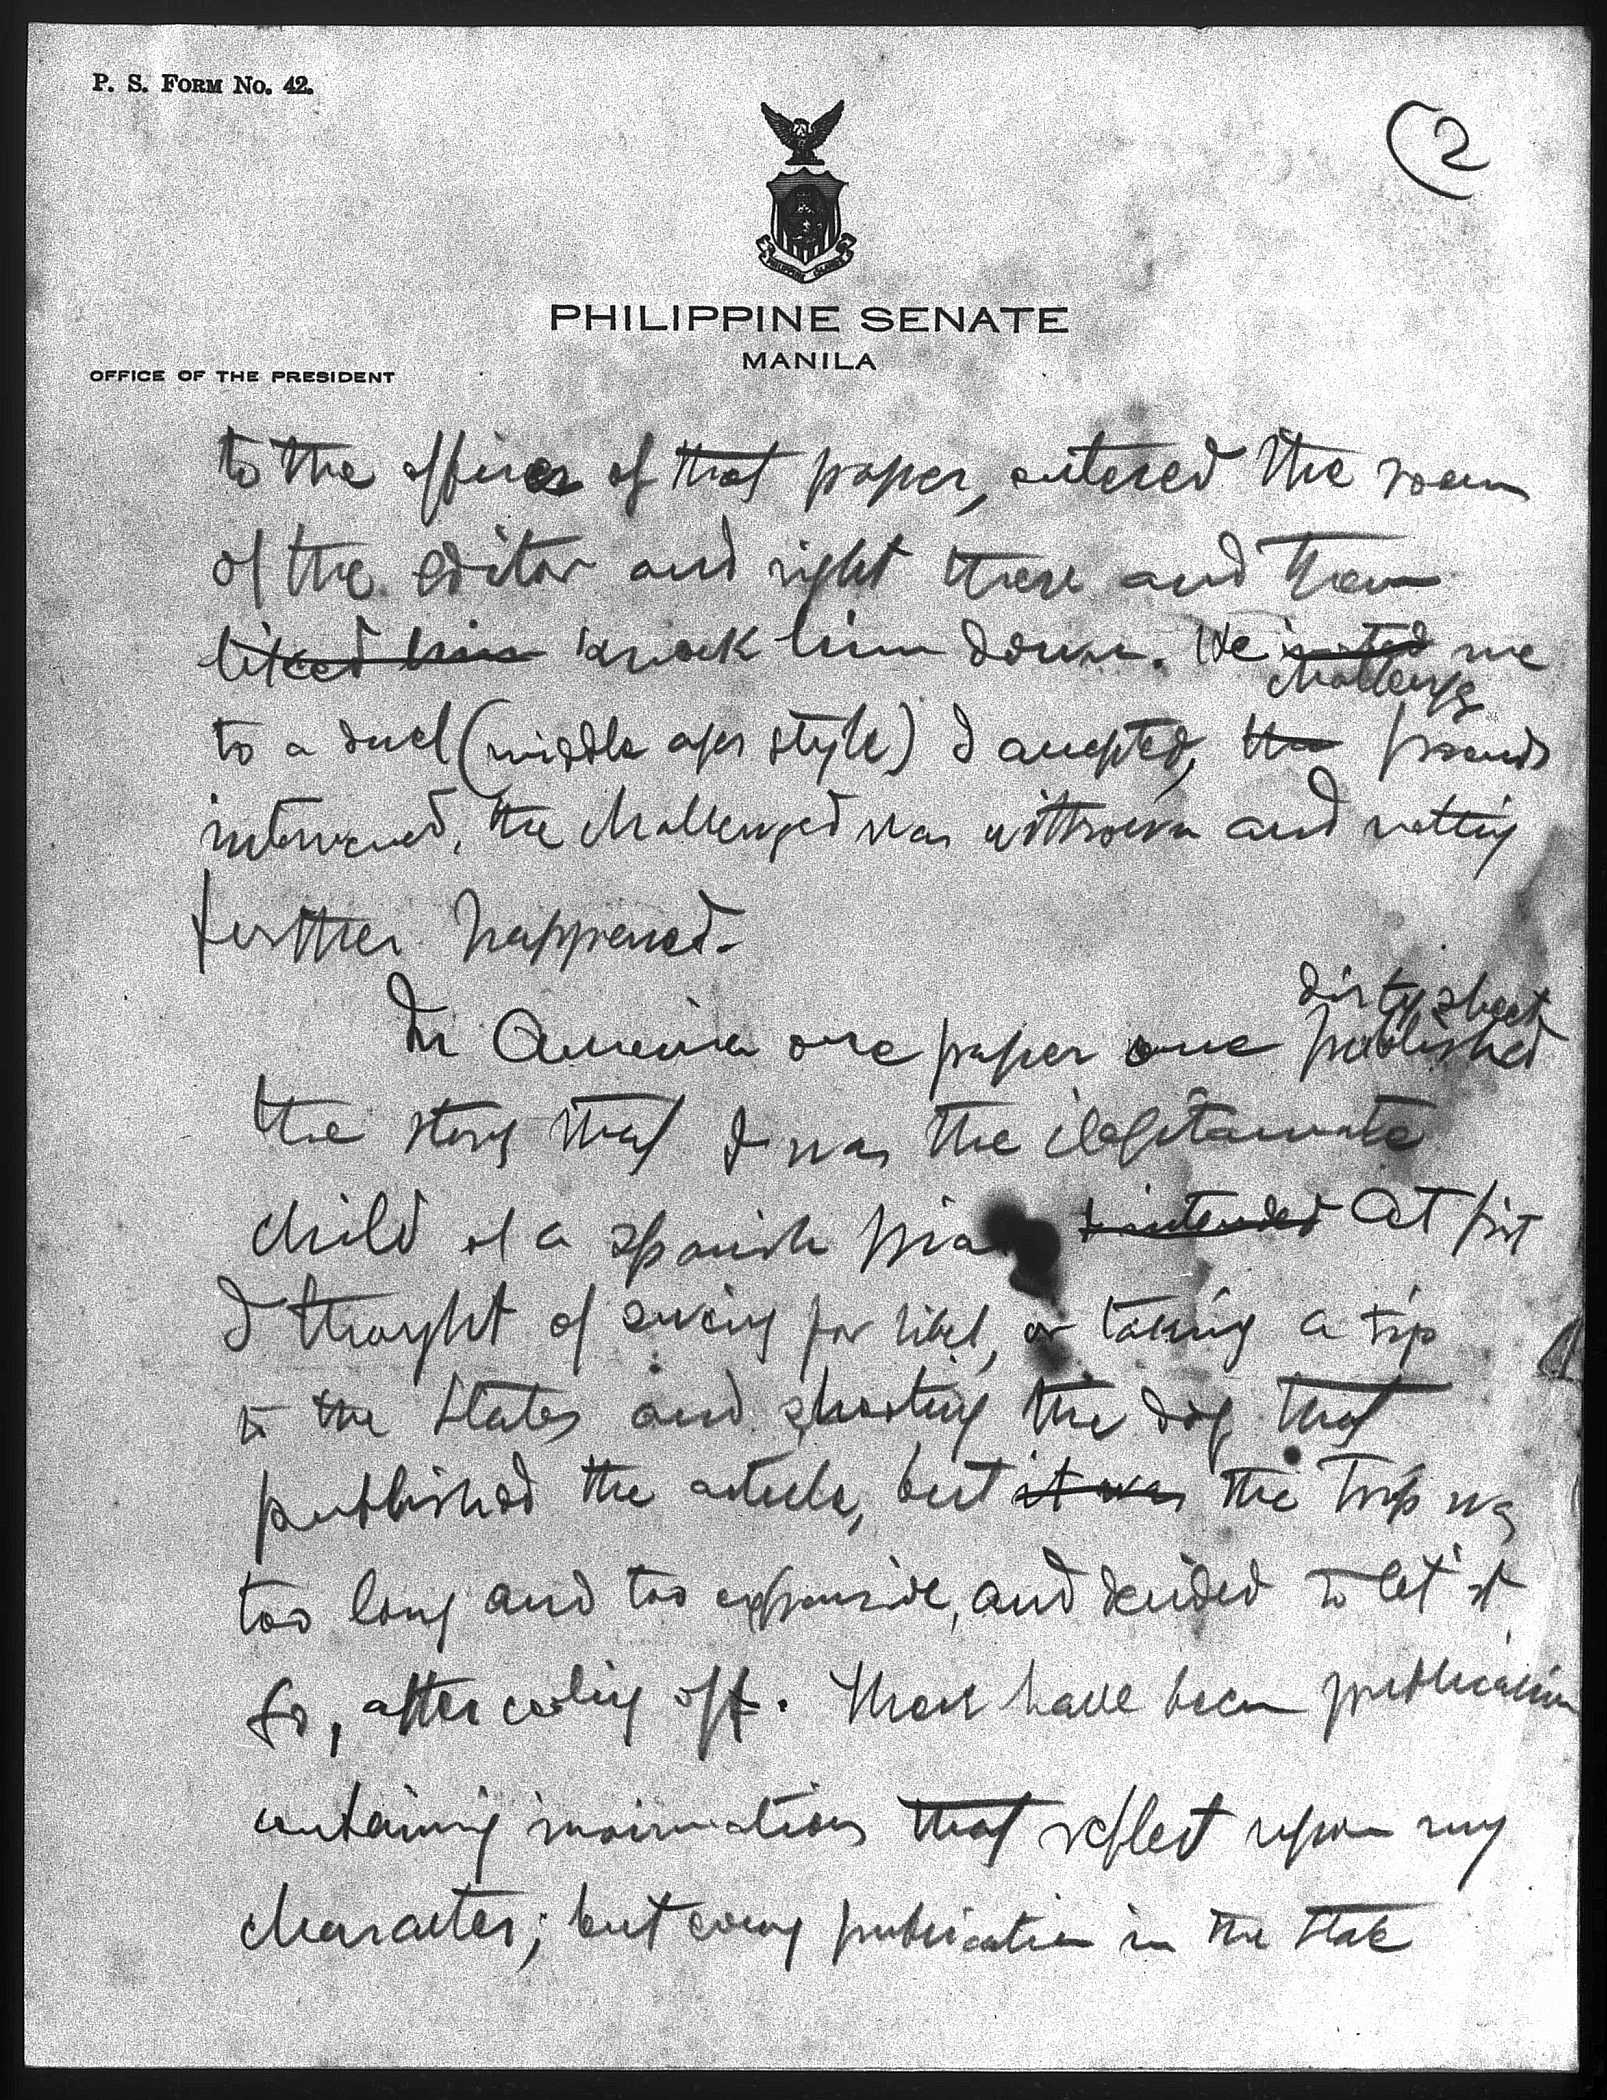 P. S. FORM No. 42.
2
PHILIPPINE ISLANDS
PHILIPPINE SENATE
MANILA
OFFICE OF THE PRESIDENT
to the offices of that paper, entered the room
of the editor and right there and then
licked him knock him down. He invited me
challenge
to a duel (middle ages style) I accepted, the friends
intervened, the challenged was withrown and nothing
further happened.
dirty sheet
In America one paper one published
the story that I was the ilegitamate
child of a spanish I intended At first
I thought of sueing for libel, or taking a trip
to the States and shooting the dog that
published the article, but it was the trip was
too long and too expensive, and decided to let it
go, after cooling off. There have been publication
containing insinuations that reflect upon my
character; but every publication in the State